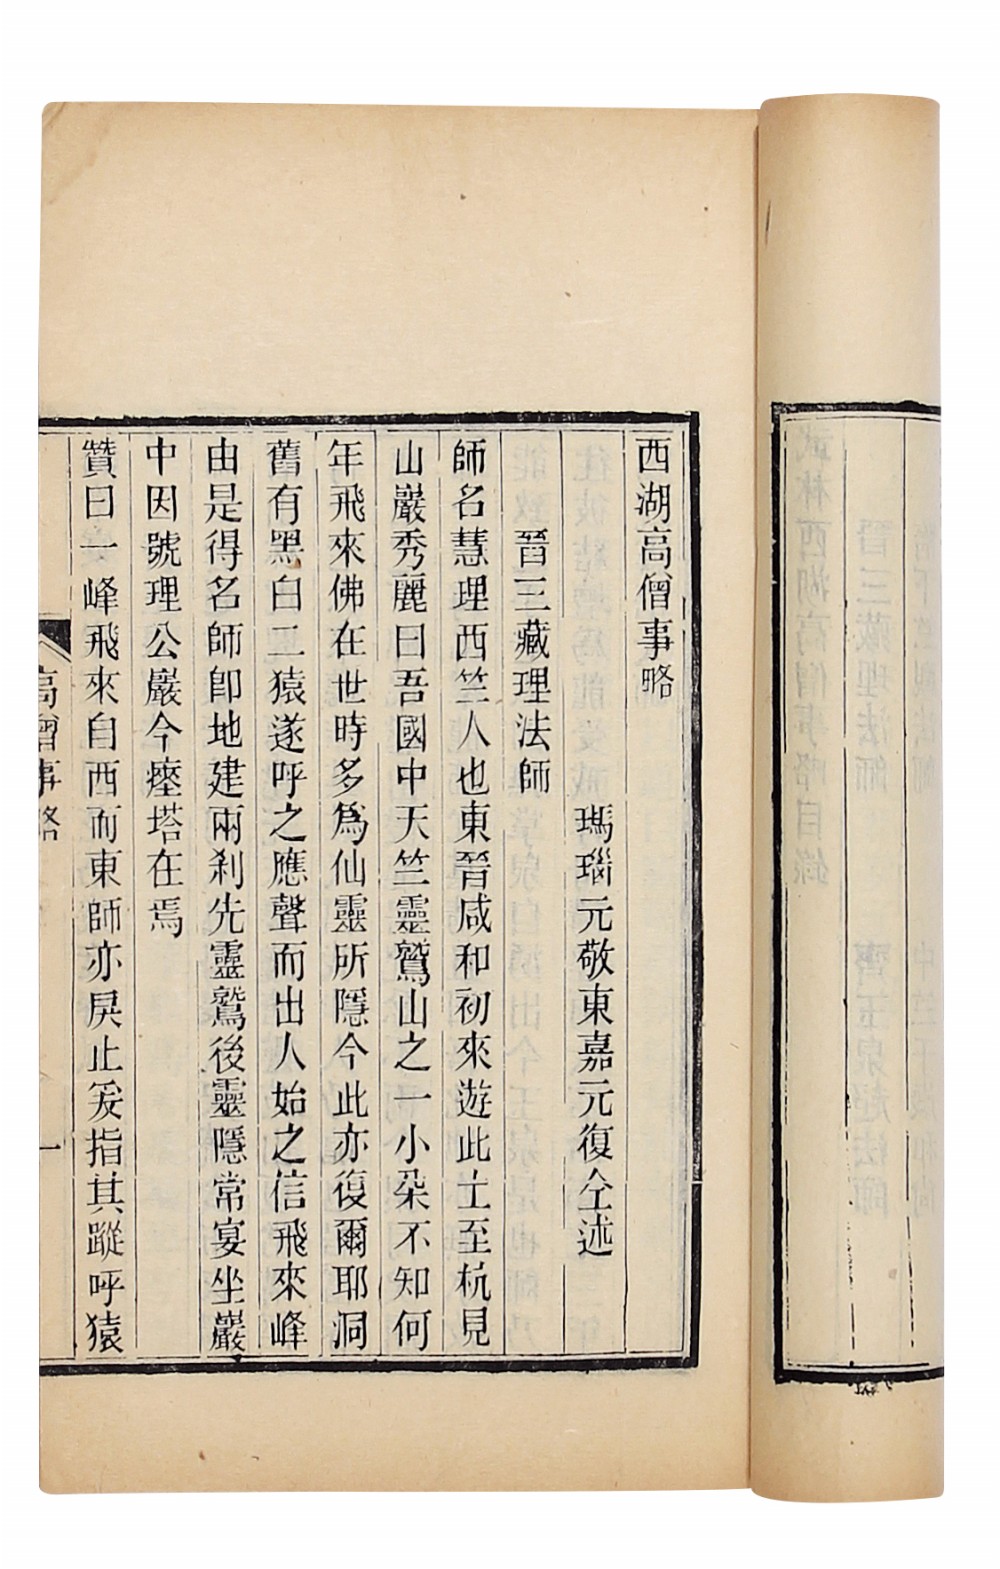 西湖高僧事略
瑪瑙元敬東嘉元復仝述
晉三藏理法師
師名慧理西竺人也東晉咸和初來遊此土至杭見
山巖秀麗曰吾國中天竺靈鷲山之一小朶不知何
年飛來佛在世時多爲仙靈所隱今此亦復爾耶洞
舊有黑白二猿遂呼之應聲而出人始之信飛來峰
由是得名師卽地建兩刹先靈鷲後靈隱常宴坐巖
中因號理公巖今瘞塔在焉
贊曰一峰飛來自西而東師亦戾止爰指其蹤呼猿
高僧事略
一